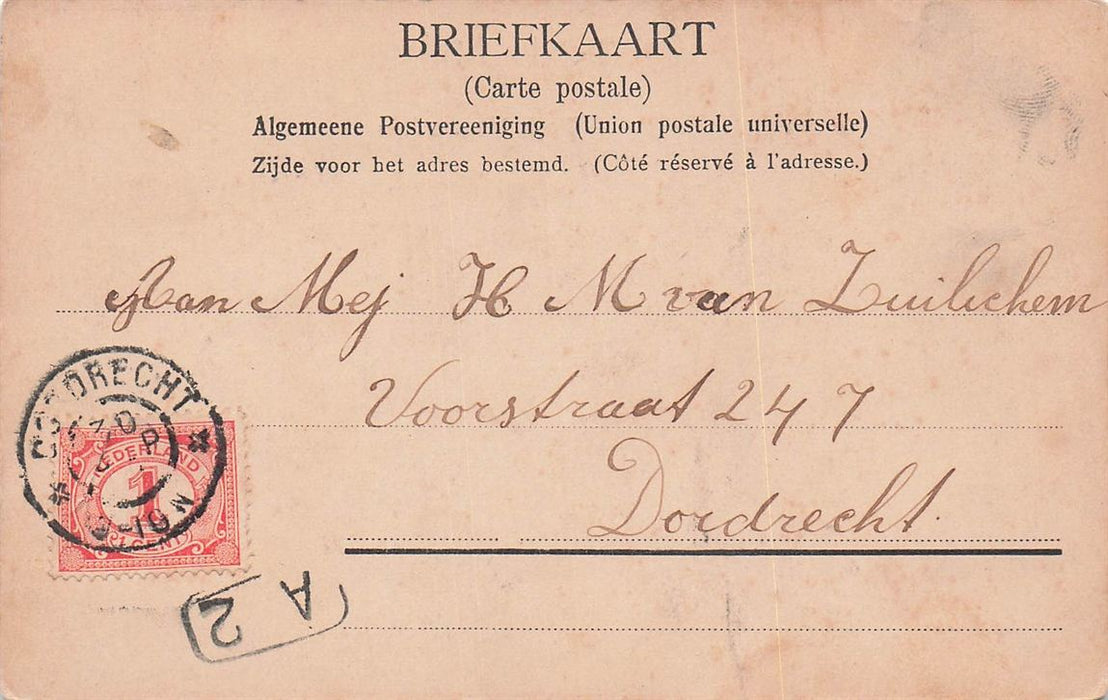 BRIEFKAART
(Carte postale)
Algemeene Postvereeniging (Union postale universelle)
Zijde voor het adres bestemd. (Côté réservé à l'adresse.)
Aan Mej H M van Zuilichem
Voorstraat 247
Dordrecht.
DORDRECHT
NEDERLAND
1
1 CENT
A 2